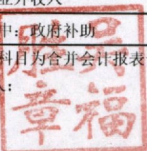 业外收入
中：政府补助
科目为合并会计报表
人：
吴
福
章